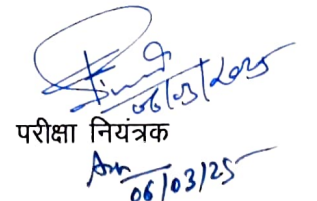 06/03/2025
परीक्षा नियंत्रक
06/03/25